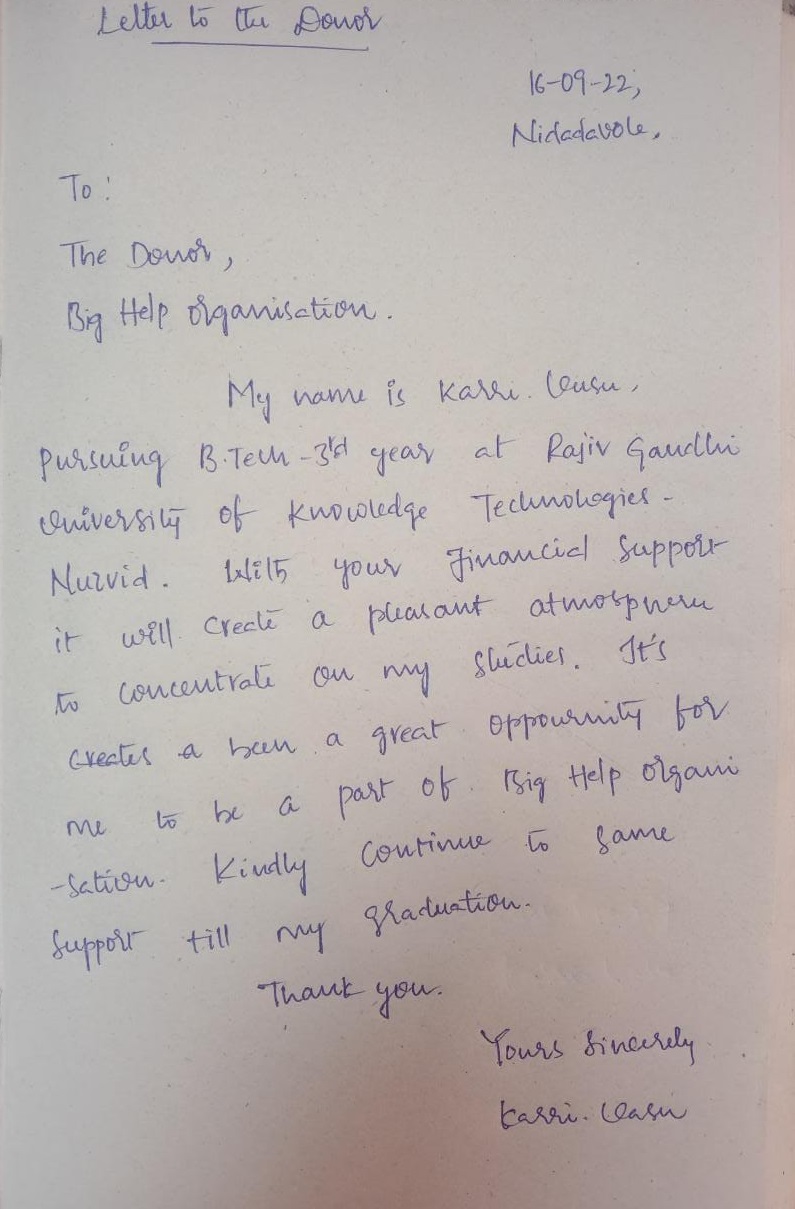 Letter to the Donor
16-09-22,
Nidadavole,
To:
The Donor,
Big Help organisation.
My name is Karri. Vasu,
Pursuing B.Tech - 3rd year at Rajiv Gandhi
University of Knowledge Technologies -
Nuzvid. With your financial support
it will create a pleasant atmosphere
to concentrate on my studies. It's
creates a been a great oppournity for
me to be a part of Big Help organi
-sation. Kindly continue to same
support till my graduation.
Thank you.
Yours Sincerely
Karri. Vasu